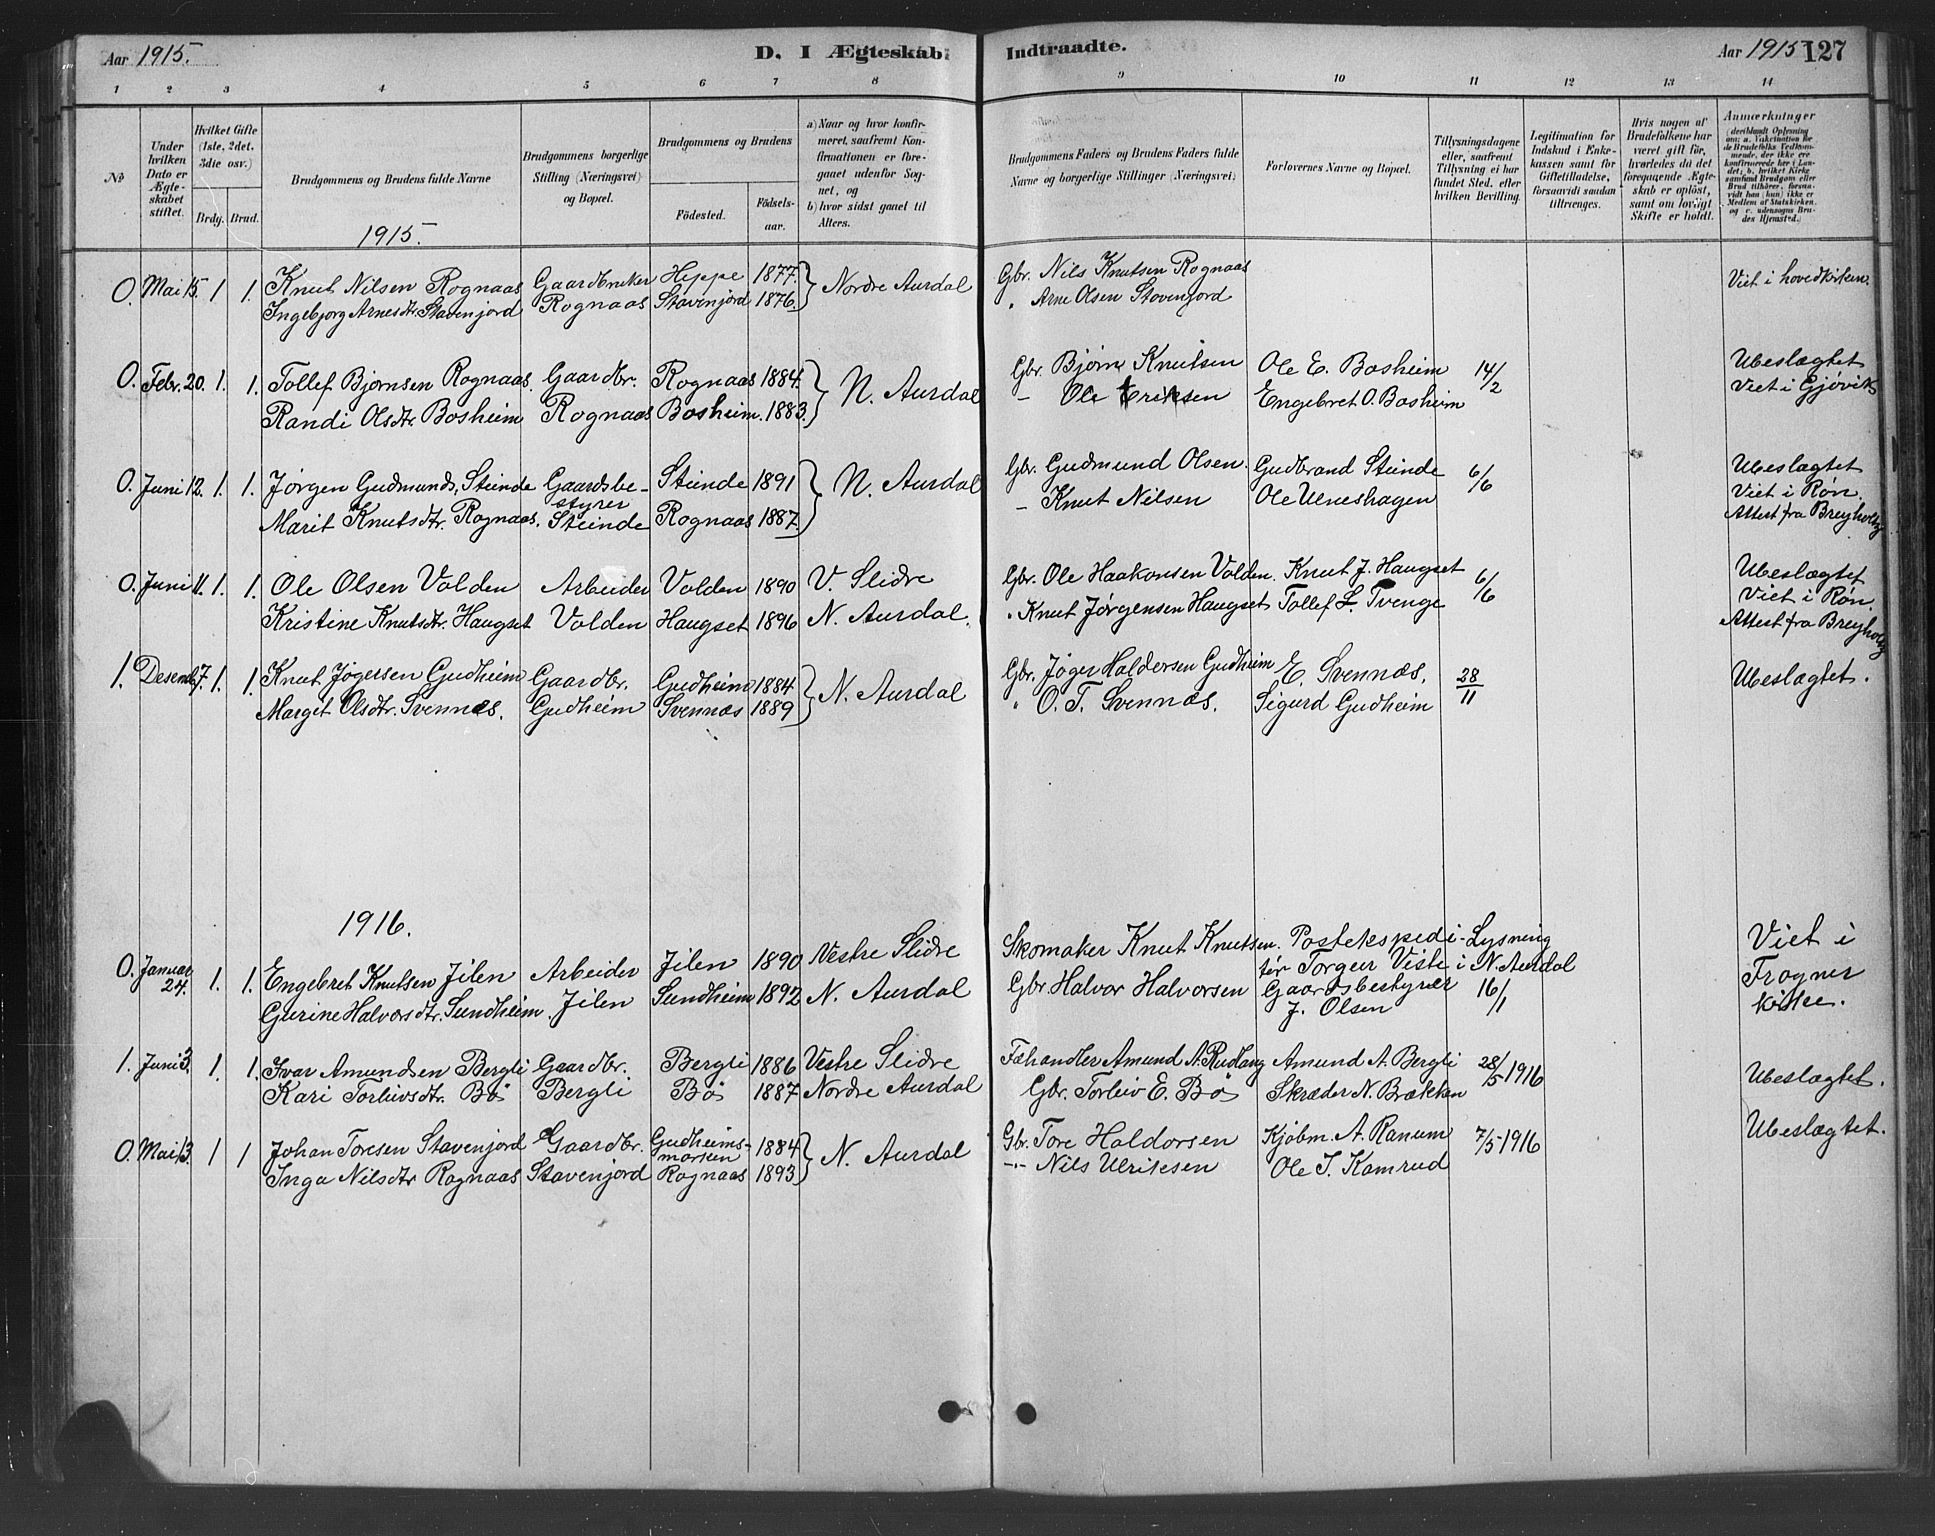 Aar 1915.
D. I Ægteskab
Indtraadte.
Aar 1915
127
1 2 3 4 5 6 7 8 9 10 11 12 13 14
No
Under hvilken Dato er Ægteskabet stiftet.
Hvilket Gifte (1ste, 2det, 3die osv.)
Brdg. Brud.
Brudgommens og Brudens fulde Navne
Brudgommens borgerlige Stilling (Næringsvei) og Bopæl.
Brudgommens og Brudens
Fødested.
Fødselsaar.
a) Naar og hvor konfirmeret, saafremt Konfirmationen er foregaaet udenfor Sognet, og
b) hvor sidst gaaet til Alters.
Brudgommens Faders og Brudens Faders fulde Navne og borgerlige Stillinger (Næringsvei)
Forlovernes Navne og Bopæl.
Tillysningsdagene eller, saafremt Tillysning ei har fundet Sted, efter hvilken Bevilling.
Legitimation for Indskud i Enkekassen samt for Giftetilladelse, forsaavidt saadan tiltrænges.
Hvis nogen af Brudefolkene har været gift før, hvorledes da det foregaaende Ægteskab er opløst, samt om lovligt Skifte er holdt.
Anmærkninger (deriblandt Oplysning om: a. Vakcination for de Brudefolks Vedkommende, der ikke ere konfirmerede her i Landet; b. hvilket Kirkesamfund Brudgom eller Brud tilhører, forsaavidt han (hun) ikke er Medlem af Statskirken, og c. udensogns Brudes Hjemsted.)
1915.
0. Mai 15. 1 1. Knut Nilsen Rognaas Gaardbruker Heppe 1877. Nordre Aurdal Gbr. Nils Knutsen Rognaas Viet i hovedkirken.
Ingebjorg Arnesdtr. Stavenjord Rognaas Stavenjord 1876. " Arne Olsen Stavenjord
0. Febr. 20. 1. 1. Tollef Bjørnsen Rognaas. Gaardbr. Rognaas 1884. N. Aurdal Gbr. Bjørn Knutsen Ole E. Bosheim 14/2 Ubeslægtet
Randi Olsdtr. Bosheim Rognaas Bosheim. 1883. - Ole Eriksen Engebret O. Bosheim Viet i Gjøvik
0. Juni 12. 1. 1. Jørgen Gudmunds. Steinde Gaardsbestyrer Steinde 1891 N. Aurdal Gbr. Gudmund Olsen. Gudbrand Steinde 6/6 Ubeslægtet
Marit Knutsdtr. Rognaas. Steinde Rognaas 1887. - Knut Nilsen Ole Ulneshagen Viet i Røn.
Attest fra Breyholtz
0. Juni 11. 1. 1. Ole Olsen Volden Arbeider Volden 1890 V. Slidre Gbr. Ole Haakonsen Volden. Knut J. Haugset 6/6 Ubeslægtet
Kristine Knutsdtr. Haugset Volden Haugset 1896 N. Aurdal. " Knut Jørgensen Haugset Tollef L. Tvenge Viet i Røn.
Attest fra Breyholtz
1. Desemb. 7. 1. 1. Knut Jøgersen Gudheim Gaardbr. Gudheim 1884 N. Aurdal Gbr. Jøger Haldorsen Gudheim E. Svennæs. 28/11 Ubeslægtet.
Marget Olsdtr. Svennæs. Gudheim Svennæs 1889 " O. T. Svennæs. Sigurd Gudheim
1916.
0. Januar 24. 1. 1. Engebret Knutsen Jilen Arbeider Jilen 1890 Vestre Slidre Skomaker Knut Knutsen. Postekspeditør Torgeir Viste Lysning i N. Aurdal Viet i
Gurine Halvorsdtr. Sundheim. Jilen Sundheim 1892 N. Aurdal Gbr. Halvor Halvorsen Gaardsbestyrer J. Olsen 16/1 Frogner kirke.
1. Juni 3. 1. 1. Ivar Amundsen Bergli Gaardbr. Bergli 1886 Vestre Slidre Fæhandler Amund A. Rudlang Amund A. Bergli 28/5 1916 Ubeslægtet.
Kari Torleivsdtr. Bø Bergli Bø 1887 Nordre Aurdal Gbr. Torleiv E. Bø Skræder N. Brækken
0. Mai 13. 1 1 Johan Toresen Stavenjord Gaardbr. Gudheimsmorken 1884 N. Aurdal Gbr. Tore Haldorsen Kjøbm. A. Ranum 7/5-1916 Ubeslægtet.
Inga Nilsdtr Rognaas Stavenjord Rognaas 1893 -"- Nils Ulriksen Ole I. Kamrud